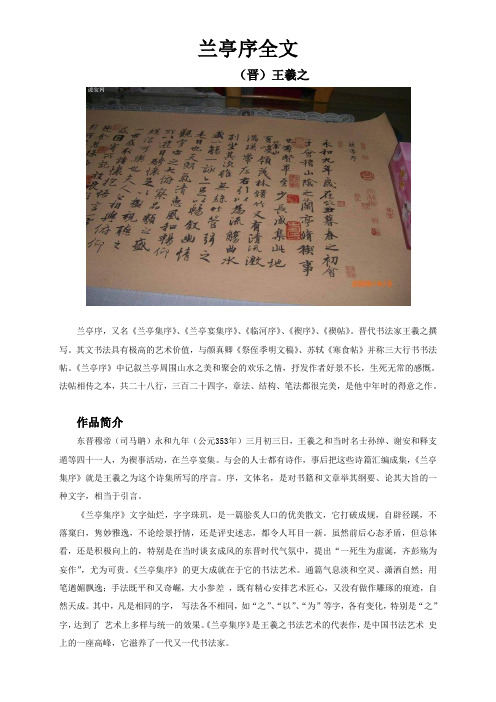 兰亭序全文
（晋）王羲之
永和九年歲在癸丑暮春之初會
于會稽山陰之蘭亭脩禊事
也羣賢畢至少長咸集此地
有崇山峻領茂林脩竹又有清流激
湍暎帶左右引以為流觴曲水
列坐其次雖無絲竹管弦之
盛一觴一詠亦足以暢敘幽情
是日也天朗氣清惠風和暢仰
觀宇宙之大俯察品類之盛
所以遊目騁懷足以極視聽之
娛信可樂也夫人之相與俯仰
兰亭序，又名《兰亭集序》、《兰亭宴集序》、《临河序》、《禊序》、《禊帖》。晋代书法家王羲之撰
写。其文书法具有极高的艺术价值，与颜真卿《祭侄季明文稿》、苏轼《寒食帖》并称三大行书书法
帖。《兰亭序》中记叙兰亭周围山水之美和聚会的欢乐之情，抒发作者好景不长，生死无常的感慨。
法帖相传之本，共二十八行，三百二十四字，章法、结构、笔法都很完美，是他中年时的得意之作。
作品简介
东晋穆帝（司马聃）永和九年（公元353年）三月初三日，王羲之和当时名士孙绰、谢安和释支
遁等四十一人，为禊事活动，在兰亭宴集。与会的人士都有诗作，事后把这些诗篇汇编成集，《兰亭
集序》就是王羲之为这个诗集所写的序言。序，文体名，是对书籍和文章举其纲要、论其大旨的一
种文字，相当于引言。
《兰亭集序》文字灿烂，字字珠玑，是一篇脍炙人口的优美散文，它打破成规，自辟径蹊，不
落窠臼，隽妙雅逸，不论绘景抒情，还是评史述志，都令人耳目一新。虽然前后心态矛盾，但总体
看，还是积极向上的，特别是在当时谈玄成风的东晋时代气氛中，提出“一死生为虚诞，齐彭殇为
妄作”，尤为可贵。《兰亭集序》的更大成就在于它的书法艺术。通篇气息淡和空灵、潇洒自然；用
笔遒媚飘逸；手法既平和又奇崛，大小参差 ，既有精心安排艺术匠心，又没有做作雕琢的痕迹，自
然天成。其中，凡是相同的字， 写法各不相同，如“之”、“以”、“为”等字，各有变化，特别是“之”
字，达到了 艺术上多样与统一的效果。《兰亭集序》是王羲之书法艺术的代表作，是中国书法艺术 史
上的一座高峰，它滋养了一代又一代书法家。